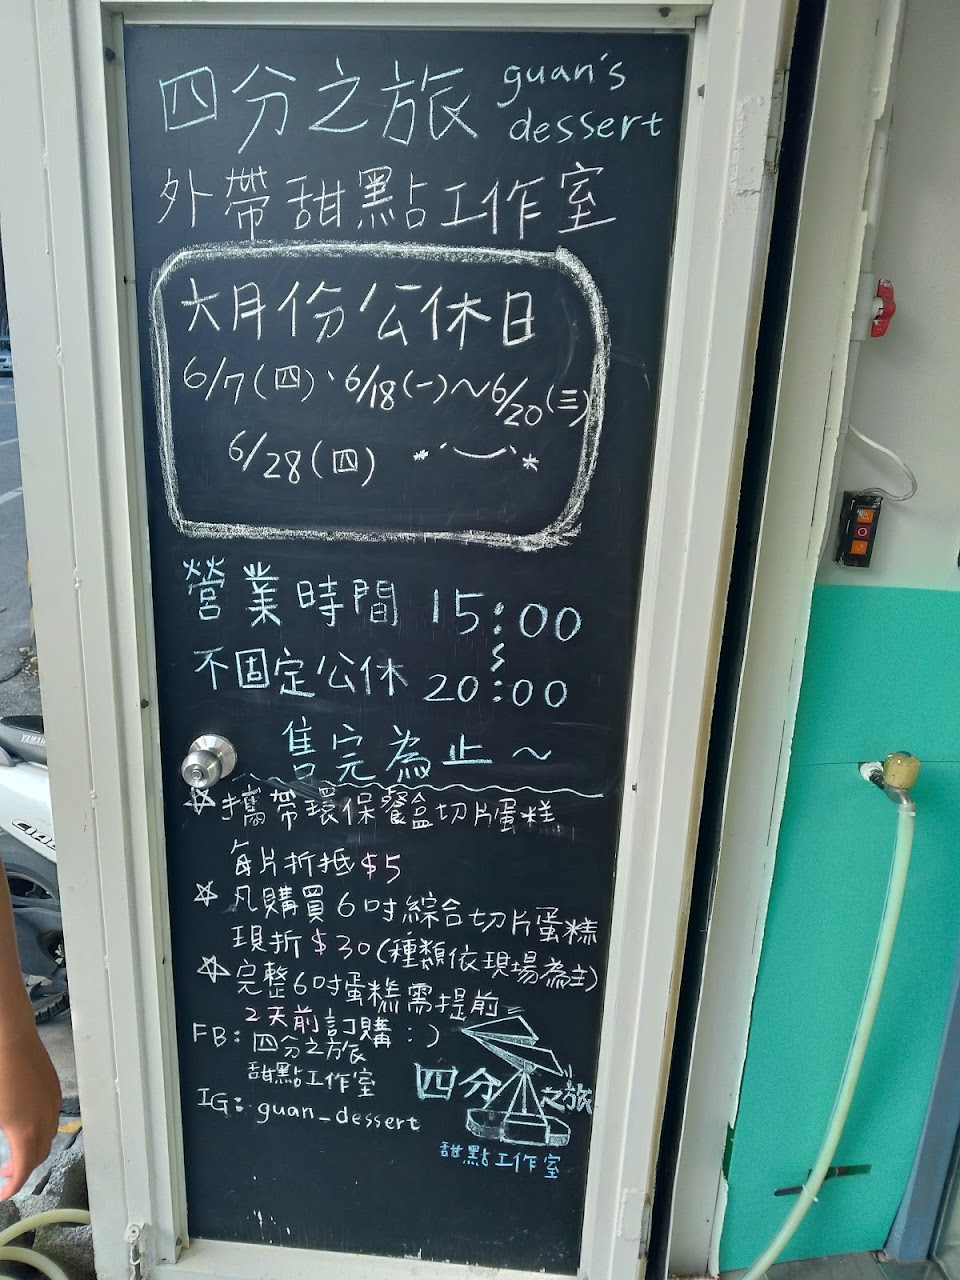 四分之旅 guan's dessert
外帶甜點工作室
六月份公休日
6/7(四)、6/18(一)～6/20(三)
6/28(四)
營業時間 15:00
～
不固定公休 20:00
售完為止～
☆攜帶環保餐盒切片蛋糕
每片折抵$5
☆凡購買6吋綜合切片蛋糕
現折$30(種類依現場為主)
☆完整6吋蛋糕需提前
2天前訂購:)
FB:四分之旅
甜點工作室
IG:guan_dessert
四分之旅
甜點工作室
YAMAHA